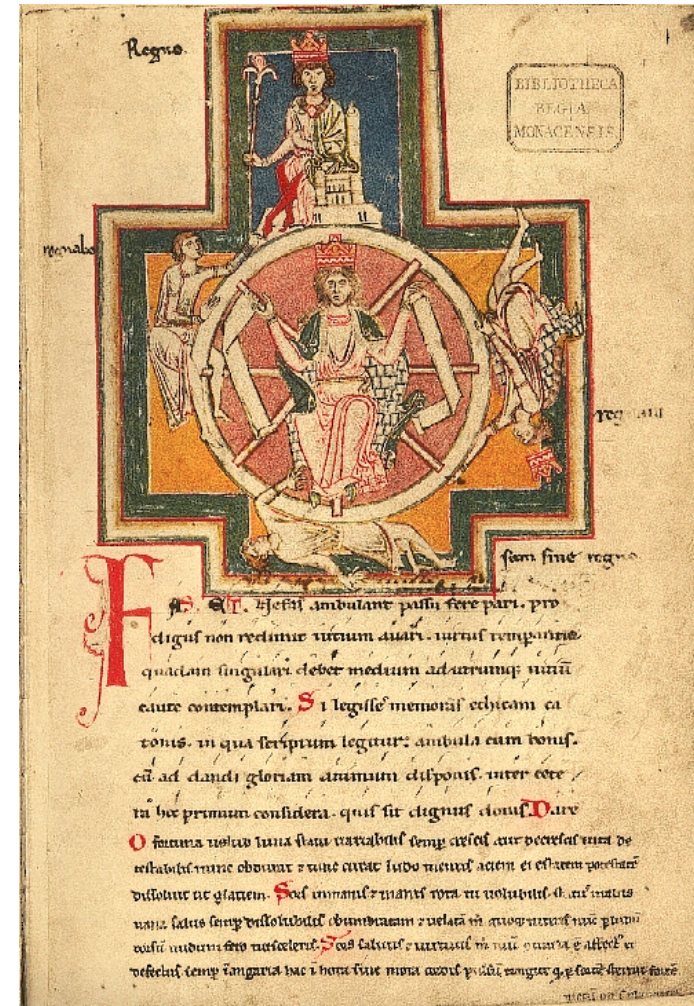 Regno
BIBLIOTHECA
REGIA
MONACENSIS
regnabo
sum sine regno
FAS ET Nefas ambulant passu fere pari. pro
digus non redimit uitium auari. uirtus temperantia
quadam singulari debet medium ad utrumq; uitiū
caute contemplari. Si legisse memoras ethicam ca
tonis. in qua scriptum legitur: ambula cum bonis.
cū ad dandi gloriam animum disponis. inter cete
ra hoc primum considera. quis sit dignus donis. Dare
O fortuna uelud luna statu uariabilis semp crescis aut decrescis uita de
testabilis nunc obdurat & tunc curat ludo mentis aciem egestatem potestatē
dissoluit ut glaciem. Sors inmanis & inanis rota tu uolubilis. status malus
uana salus semp dissolubilis obumbratam & uelatam m quoq niteris nūc p ludum
dorsū nudum fero tui sceleris. Sors salutis & uirtutis m nūc ē affect &
defectus semp ī angaria hac ī hora sine mora cordis pulsū tangite q p sortē sternit fortē
mecū oms plangite